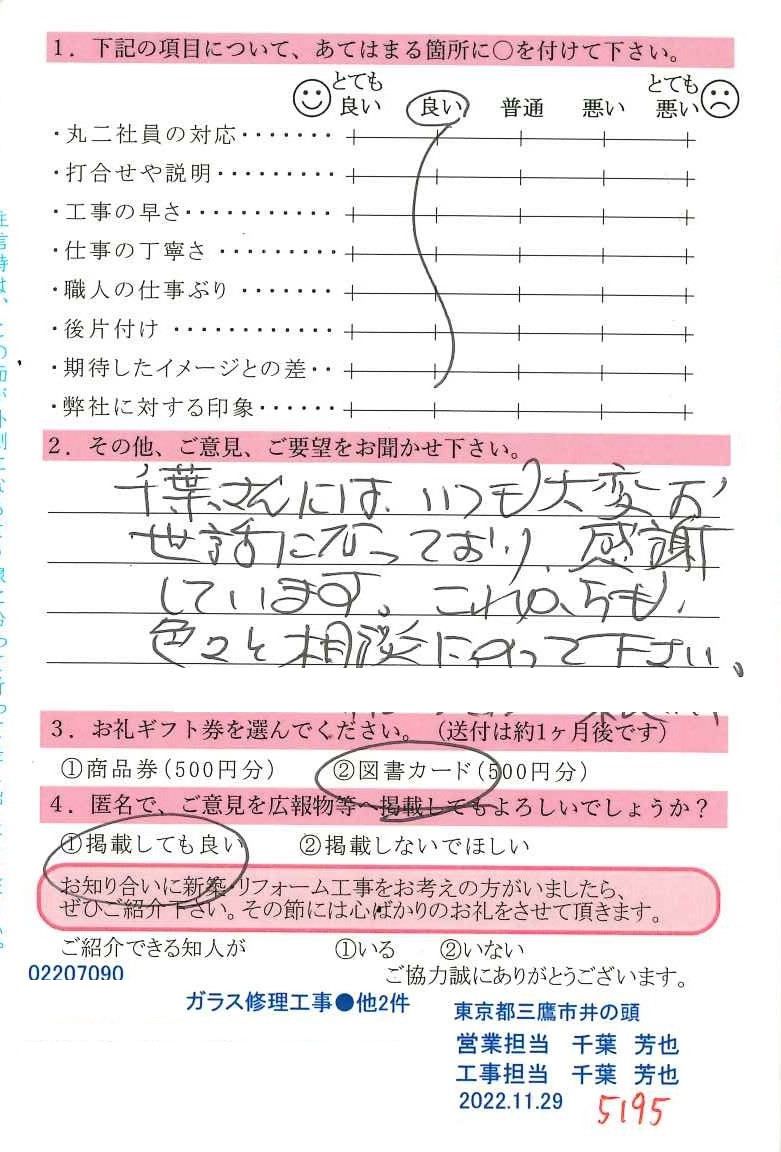 1．下記の項目について、あてはまる箇所に○を付けて下さい。
とても良い 良い 普通 悪い とても悪い
・丸二社員の対応・・・・・・・
・打合せや説明・・・・・・・・・
・工事の早さ・・・・・・・・・・・
・仕事の丁寧さ・・・・・・・・・
・職人の仕事ぶり・・・・・・・
・後片付け・・・・・・・・・・・・
・期待したイメージとの差・・
・弊社に対する印象・・・・・・
2．その他、ご意見、ご要望をお聞かせ下さい。
千葉さんには、いつも大変お
世話になっており、感謝
しています。これからも、
色々と相談にのって下さい。
3．お礼ギフト券を選んでください。（送付は約1ヶ月後です）
①商品券（500円分） ②図書カード（500円分）
4．匿名で、ご意見を広報物等へ掲載してもよろしいでしょうか？
①掲載しても良い ②掲載しないでほしい
お知り合いに新築・リフォーム工事をお考えの方がいましたら、
ぜひご紹介下さい。その節には心ばかりのお礼をさせて頂きます。
ご紹介できる知人が ①いる ②いない
02207090 ご協力誠にありがとうございます。
ガラス修理工事●他2件
東京都三鷹市井の頭
営業担当 千葉 芳也
工事担当 千葉 芳也
2022.11.29
5195